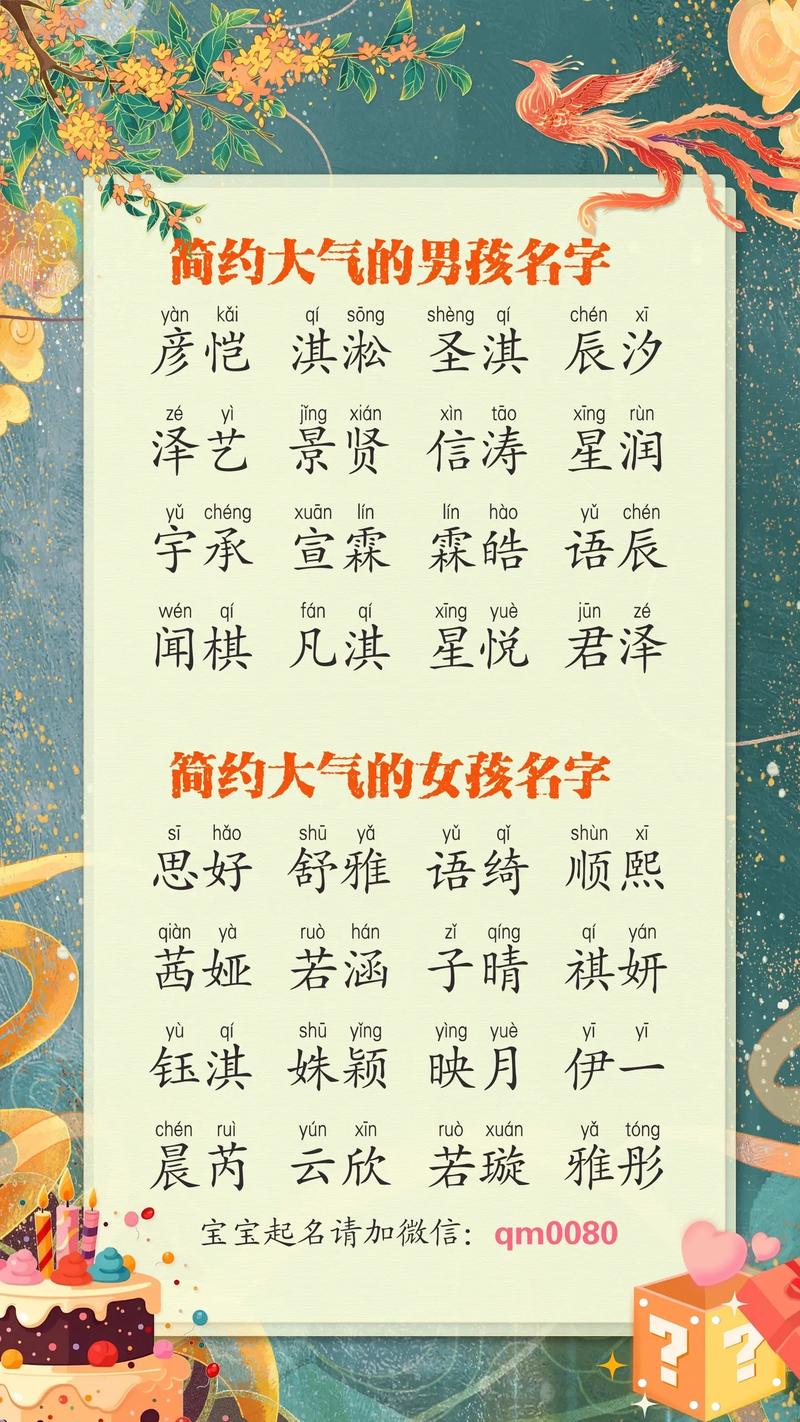 简约大气的男孩名字
yàn kǎi qí sōng shèng qí chén xī
彦恺 淇淞 圣淇 辰汐
zé yì jǐng xián xìn tāo xīng rùn
泽艺 景贤 信涛 星润
yǔ chéng xuān lín lín hào yǔ chén
宇承 宣霖 霖皓 语辰
wén qí fán qí xīng yuè jūn zé
闻棋 凡淇 星悦 君泽
简约大气的女孩名字
sī hǎo shū yǎ yǔ qǐ shùn xī
思好 舒雅 语绮 顺熙
qiàn yà ruò hán zǐ qíng qí yán
茜娅 若涵 子晴 祺妍
yù qí shū yǐng yìng yuè yī yī
钰淇 姝颖 映月 伊一
chén ruì yún xīn ruò xuán yǎ tóng
晨芮 云欣 若璇 雅彤
宝宝起名请加微信：qm0080
? ?